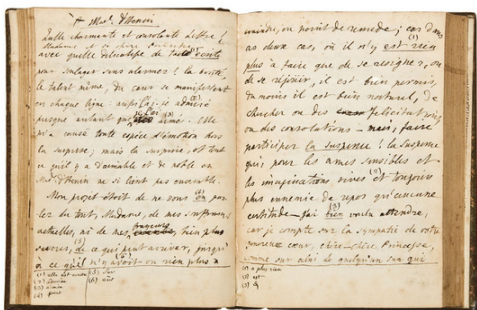 A Mad. d'Henin
Quelle charmante et consolante Lettre!
Madame et sa chère Princesse
avec quelle délicatesse de tact écrite
pour soulager sans alarmer! la bonté,
le talent même, du cœur se manifestent
en chaque ligne. aussi, je admire
presque autant que
m'a causé toute espèce d'émotion dans
la surprise; mais la surprise, est tout
ce qu'il y a d'aimable et de noble en
Mad. d'Henin ne se lient pas ensemble.
Mon projet étoit de ne vous par
ler du tout, Madame, de mes
actuelles, ni de mes françois bien plus
de ce qui peut arriver, jusqu'
à ce qu'il n'y avoit ou rien plus à
craindre, ou point de remede; car dans
as deux cas, où il n'y est rien
plus à faire que de se resigner, ou
de se réjouir, il est bien permis,
du moins il est bien naturel, de
chercher ou des felicitations,
ou des consolations — mais, faire
participer la Suspense! la Suspense
qui, pour les ames sensibles et
les imaginations vives est toujours
plus ennemie de repos qu'aucune
certitude — j'ai bien voulu attendre,
car je compte sur la sympatie de votre
genereux cœur, chère — chère Princesse,
comme sur celui de quelqu'un qui